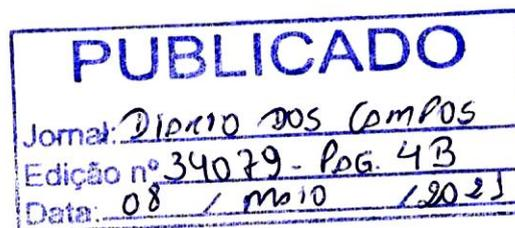 PUBLICADO
Jornal: DIARIO DOS CAMPOS
Edição nº 34079 - PAG. 4B
Data: 08 / maio /2025